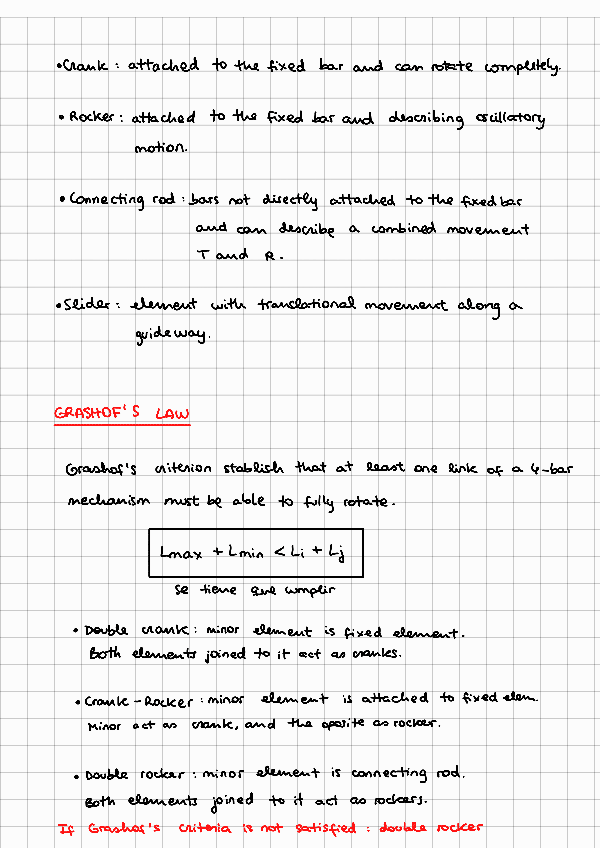 • Crank : attached to the fixed bar and can rotate completely.
• Rocker : attached to the fixed bar and describing oscillatory
motion.
• Connecting rod : bars not directly attached to the fixed bar
and can describe a combined movement
T and R.
• Slider : element with translational movement along a
guideway.
GRASHOF'S LAW
Grashof's criterion stablish that at least one link of a 4-bar
mechanism must be able to fully rotate.
Lmax + Lmin < Li + Lj
se tiene que cumplir
• Double crank : minor element is fixed element.
Both elements joined to it act as cranks.
• Crank - Rocker : minor element is attached to fixed elem.
Minor act as crank, and the oposite as rocker.
• Double rocker : minor element is connecting rod.
Both elements joined to it act as rockers.
If Grashof's criteria is not satisfied : double rocker